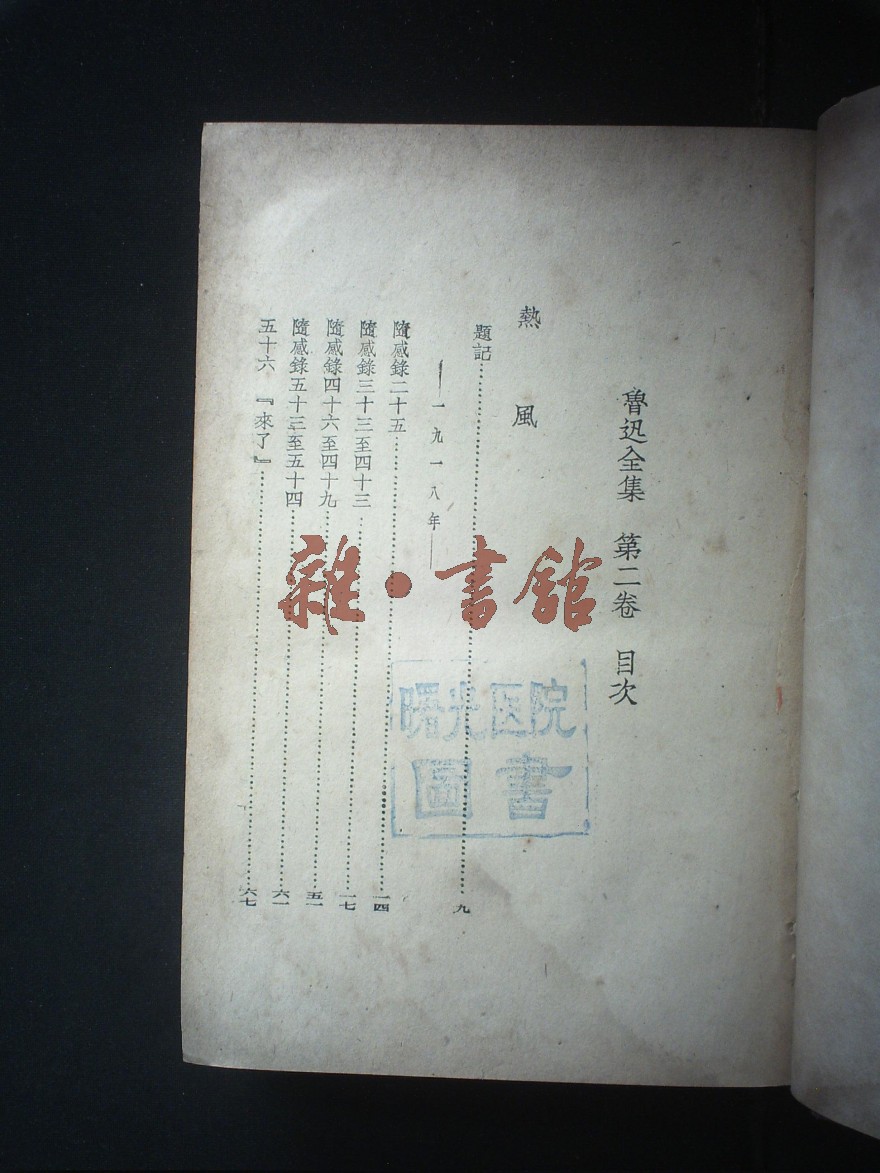 魯迅全集　第二卷　目次
熱　風
題記……………………九
——一九一八年——
隨感錄二十五……………………一四
隨感錄三十三至四十三……………………一七
隨感錄四十六至四十九……………………五一
隨感錄五十三至五十四……………………六一
五十六　『來了』……………………六七
雜·書館
曙光医院
圖書